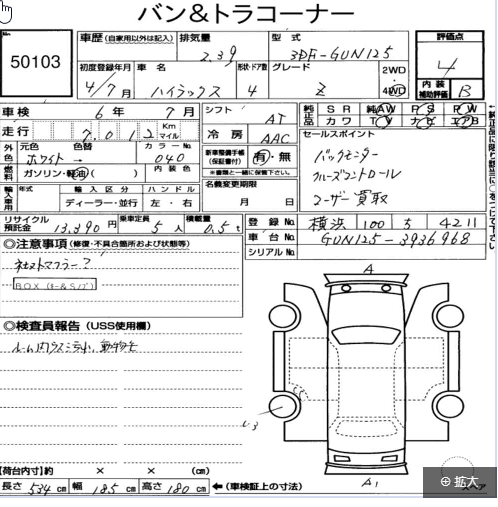 バン＆トラコーナー
No.
50103
車歴 (自家用以外は記入)
排気量
2.39
型式
3DF-GUN125
評価点
4
初度登録年月
4/7月
車名
ハイラックス
形状・ドア数
4
グレード
Z
2WD
4WD
内装
補助評価
B
車検
6年 7月
シフト
AT
純正品
SR 純AW PS PW
カワ TV ナビ エアB
走行
7,012
Km
マイル
冷房
AAC
セールスポイント
外色
元色
ホワイト→
色替
カラーNo.
040
新車整備手帳
(保証書付)
有・無
※書類と一緒に保管下さい。
バックモニター
クルーズコントロール
ユーザー買取
燃料
ガソリン・軽油( )
内装色
輸入車用
年式
輸入区分
ディーラー・並行
ハンドル
左・右
名義変更期限
月 日
リサイクル
預託金
13,390円
乗車定員
5人
積載量
0.5t
登録No.
横浜 100 う 4211
車台No.
GUN125-3936968
シリアルNo.
◎注意事項(修復・不具合箇所および状態等)
社外マフラー?
BOX(キー&Sノブ)
◎検査員報告 (USS使用欄)
A
A1
【荷台内寸】約 × × (cm)
長さ 534cm 幅 185cm 高さ 180cm
←(車検証上の寸法)
スペア
拡大